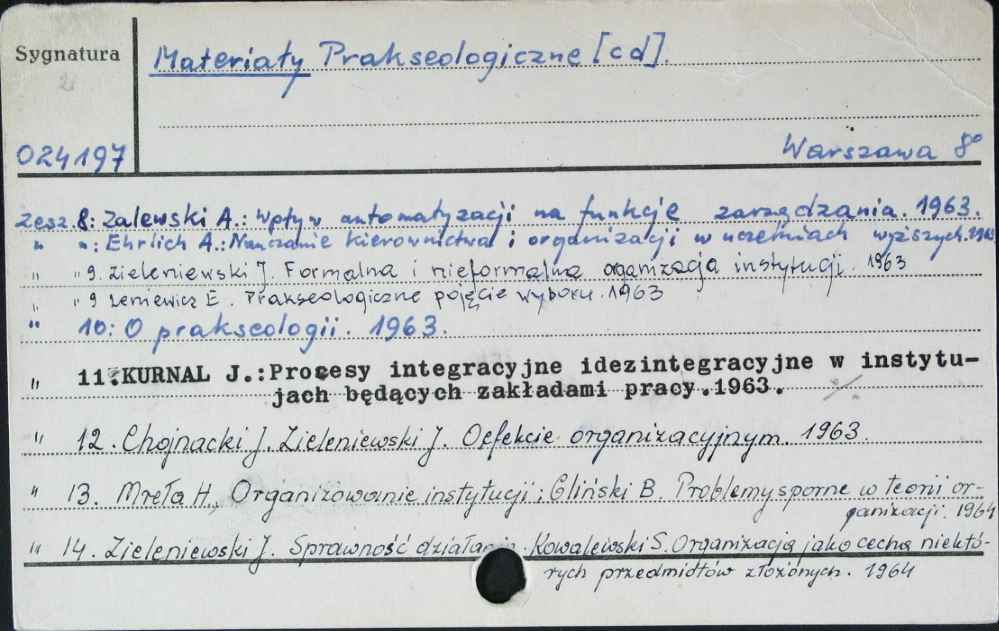 Sygnatura
Materiały Prakseologiczne [cd].
024197
Warszawa 8°
Zesz. 8: Zalewski A.: Wpływ automatyzacji na funkcję zarządzania. 1963.
" ": Ehrlich A.: Nauczanie kierownictwa i organizacji w uczelniach wyższych. 1963
" " 9. Zieleniewski J. Formalna i nieformalna organizacja instytucji. 1963
" " 9 Leniewicz E. Prakseologiczne pojęcie wyboru. 1963
" 10: O prakseologii. 1963.
" 11. KURNAL J.: Procesy integracyjne idezintegracyjne w instytu-
jach będących zakładami pracy. 1963.
" 12. Chojnacki J. Zieleniewski J. O efekcie organizacyjnym. 1963.
" 13. Mreła H., Organizowanie instytucji; Gliński B. Problemy sporne w teorii or-
ganizacji. 1964
" 14. Zieleniewski J. Sprawność działania. Kowalewski S. Organizacja jako cecha niektó-
rych przedmiotów złożonych. 1964